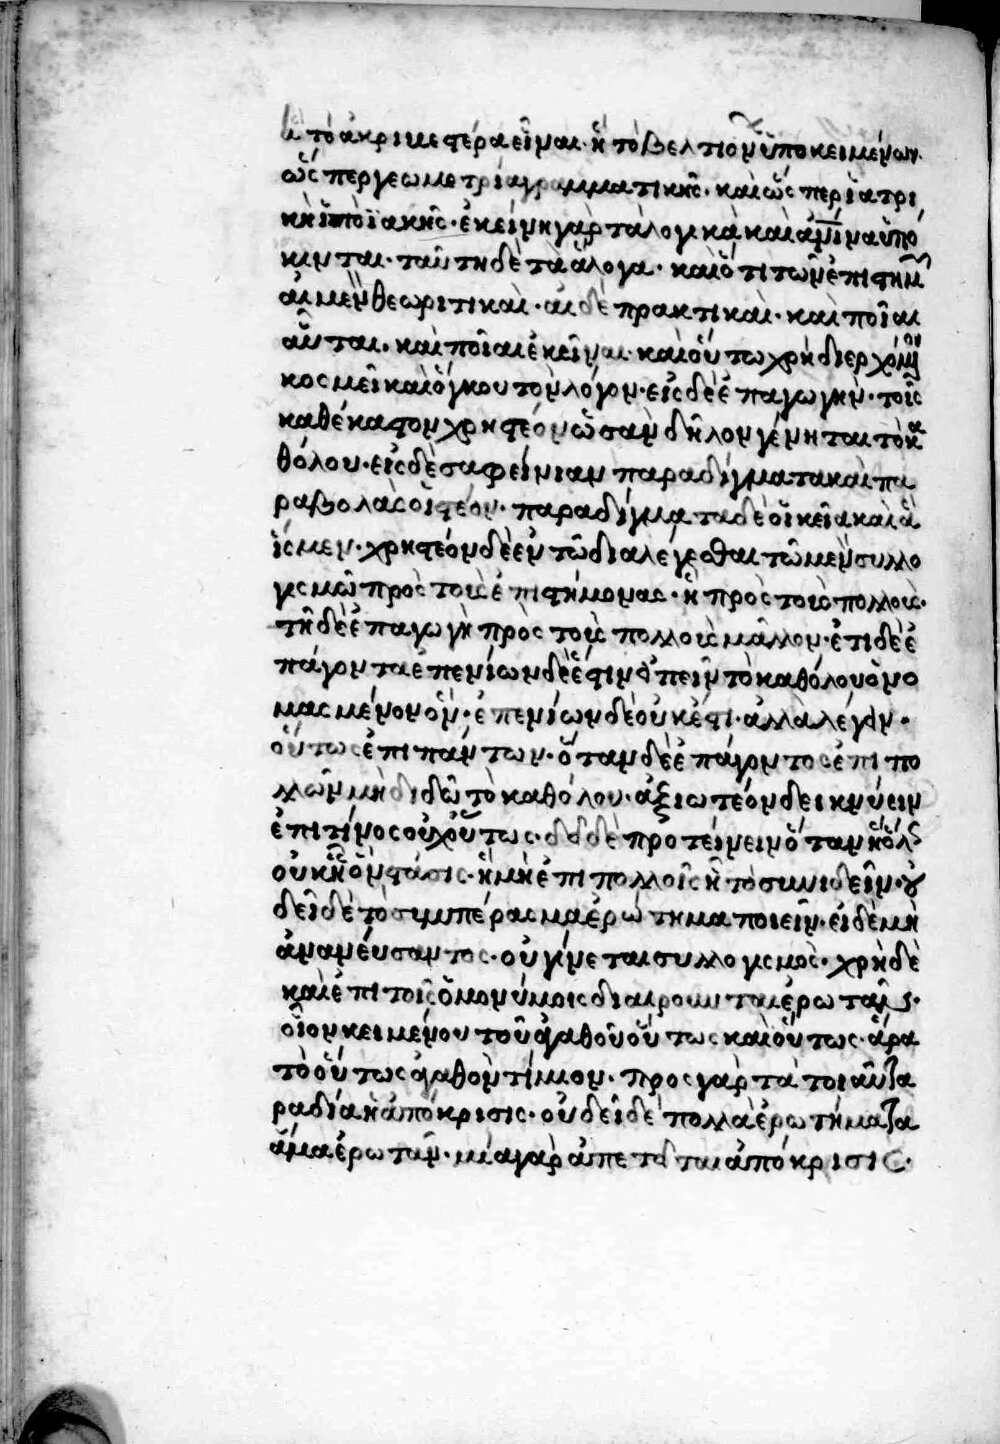 ἢ τὸ ἀκριβεστέρα εἶναι· ἢ τὸ βελτιόνων ὑποκειμένων·
ὥσπερ γεωμετρία γραμματικῆς· καὶ ὥσπερ ἰατρι
κὴ ἱπποϊακῆς· ἐκείνη γὰρ τὰ λογικὰ καὶ ἀμείνω ὑπό
κεινται· ταύτη δὲ τὰ ἄλογα· καὶ ὅτι τῶν ἐπιστημῶν
αἱ μὲν θεωριτικαὶ· αἱ δὲ πρακτικαὶ· καὶ ποῖαι
αὗται· καὶ ποῖαι ἐκεῖναι· καὶ οὕτω χρὴ διερχόμενον
κοσμεῖν καὶ ὀγκοῦν τὸν λόγον· εἰς δὲ ἐπαγωγὴν· τοῖς
καθέκαστον χρηστέον ὡς ἂν δῆλον γένηται τὸ κα
θόλου· εἰς δὲ σαφείνιαν παραδίγματα καὶ πα
ραβολὰς οἰστέον· παραδίγματα δὲ οἰκεῖα καὶ ἃ
ἴσμεν· χρηστέον δὲ ἐν τῶ διαλέγεσθαι τῶ μὲν συλλο
γισμῶ πρὸς τοὺς ἐπιστήμονας· ἢ πρὸς τοὺς πολλούς·
τῆ δὲ ἐπαγωγῆ πρὸς τοὺς πολλοὺς μᾶλλον· ἔτι δὲ ἐ
πάγοντα ἐπενίων δὲ ἔστιν εἰπεῖν τὸ καθόλου ὀνο
μασμένον ὂν· ἐπενίων δὲ οὐκέστι· ἀλλὰ λέγειν·
οὕτως ἐπὶ πάντων· ὅταν δὲ ἐπάγοντος ἐπὶ πο
λλῶν μὴ διδῶ τὸ καθόλου· ἀξιωτέον δεικνύειν
ἐπὶ τίνος οὐχ οὕτως· δεῖ δὲ προτείνειν ὅταν ἢ ὅλως
οὐκ ἦ ὂν στάσις· ἢ μὴ ἐπι πολλοῖς ἦ τὸ συνιδεῖν· οὐ
δεῖ δὲ τὸ συμπέρασμα ἐρώτημα ποιεῖν· εἰ δὲ μὴ
ἀνανεύσαντος· οὐ γίνεται συλλογισμὸς· χρὴ δὲ
καὶ ἐπι τοῖς ὁμονύμοις διαιρο ἐρωτᾶν·
οἷον κειμένου τοῦ ἀγαθοῦ οὕτως καὶ οὕτως· ἄρα
τὸ οὕτως ἀγαθὸν τίμιον· πρὸς γὰρ τὰ τοιαῦτα
ραδία ἡ ἀπόκρισις· οὐ δεῖ δὲ πολλὰ ἐρωτήματα
ἅμα ἐρωτᾶν· μία γὰρ ἀπετεῖται ἀπόκρισις·